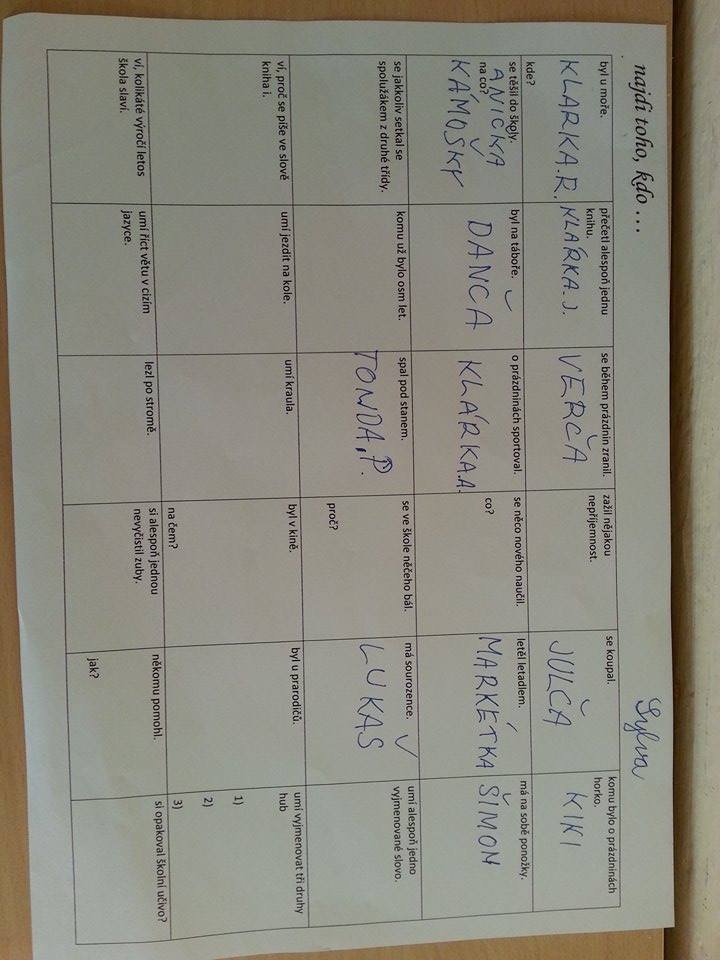 najdi toho, kdo ...
Sylva
byl u moře.
kde?
KLARKA.R.
přečetl alespoň jednu
knihu.
KLÁRKA.J.
se během prázdnin zranil.
VERČA
zažil nějakou
nepříjemnost.
se koupal.
JULČA
komu bylo o prázdninách
horko.
KIKI
se těšil do školy.
na co?
ANIČKA
KÁMOSKY
byl na táboře.
DANČA
o prázdninách sportoval.
KLÁRKA.A.
se něco nového naučil.
co?
letěl letadlem.
MARKÉTKA
má na sobě ponožky.
ŠIMON
se jakkoliv setkal se
spolužákem z druhé třídy.
komu už bylo osm let.
spal pod stanem.
TONDA.P.
se ve škole něčeho bál.
proč?
má sourozence.
LUKAŠ
umí alespoň jedno
vyjmenované slovo.
ví, proč se píše ve slově
kniha i.
umí jezdit na kole.
umí kraula.
byl v kině.
na čem?
byl u prarodičů.
umí vyjmenovat tři druhy
hub
1)
2)
3)
ví, kolikáté výročí letos
škola slaví.
umí říct větu v cizím
jazyce.
lezl po stromě.
si alespoň jednou
nevyčistil zuby.
někomu pomohl.
jak?
si opakoval školní učivo?